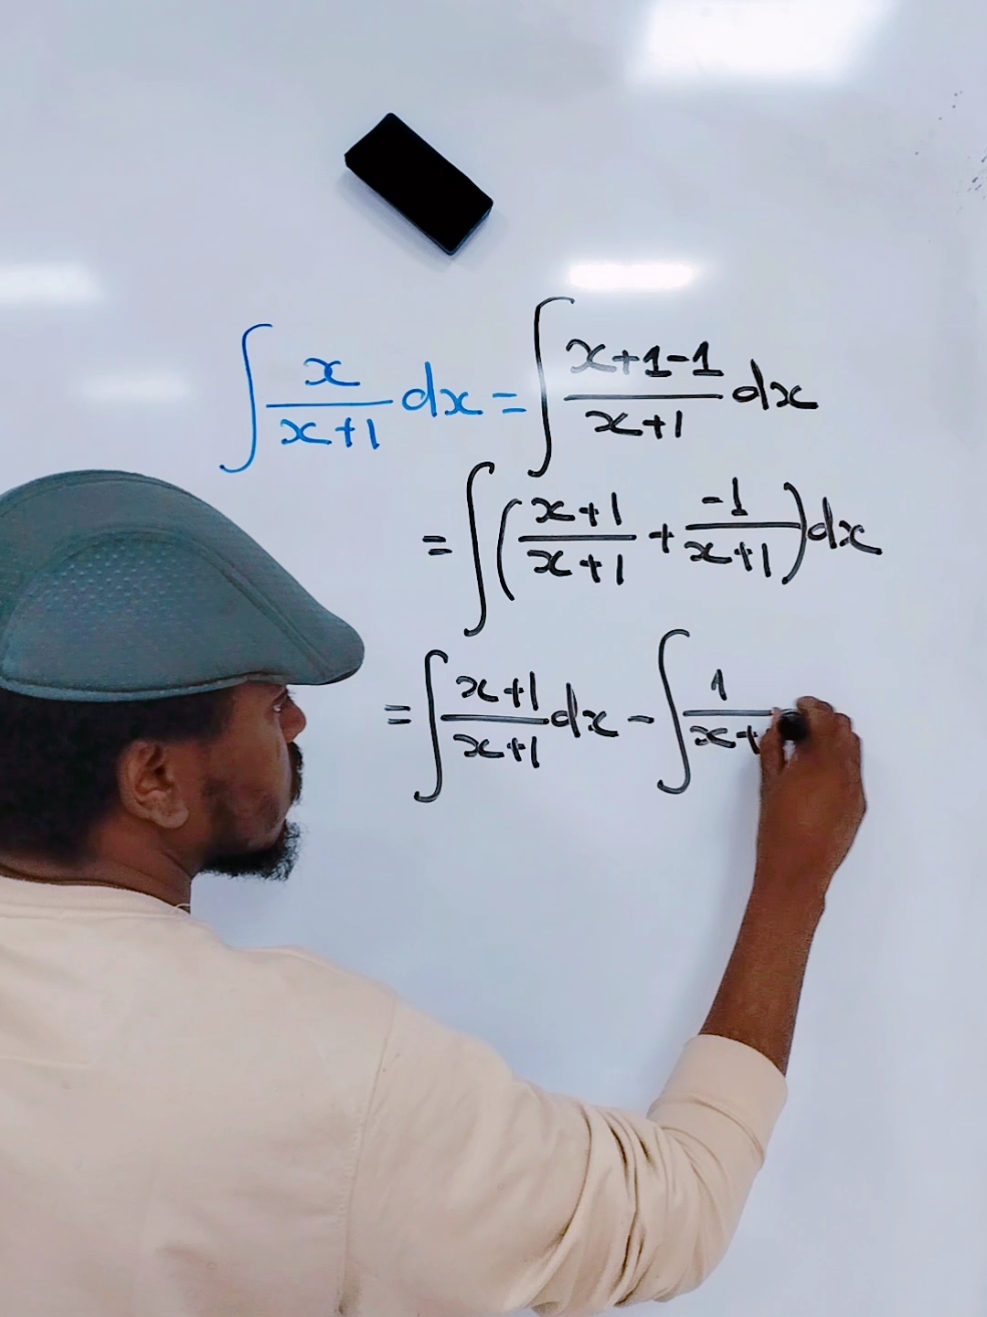 ∫ x/(x+1) dx = ∫ (x+1-1)/(x+1) dx
= ∫ ( (x+1)/(x+1) + (-1)/(x+1) ) dx
= ∫ (x+1)/(x+1) dx - ∫ 1/(x+